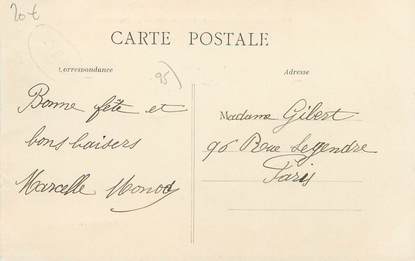 20€
CARTE POSTALE
Correspondance
Adresse
95
Bonne fête et
bons baisers
Marcelle Monod
Madame Gilbert
96 Rue Legendre
Paris